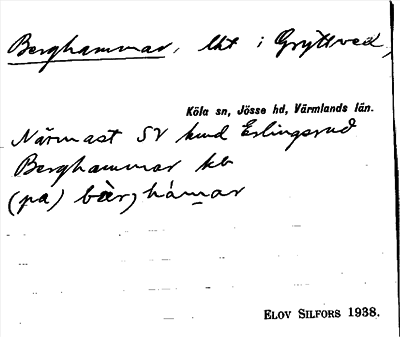 Berghammar, lht i Gryttved,
Köla sn, Jösse hd, Värmlands län.
Närmast SV hmd Erlingsrud
Berghammar kb
(pa) bær, hámar
ELOV SILFORS 1938.